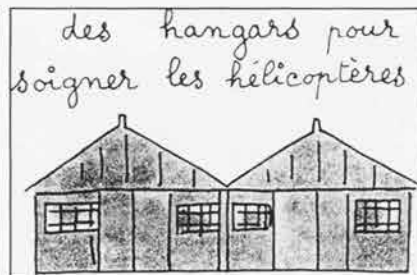 des hangars pour
soigner les hélicoptères